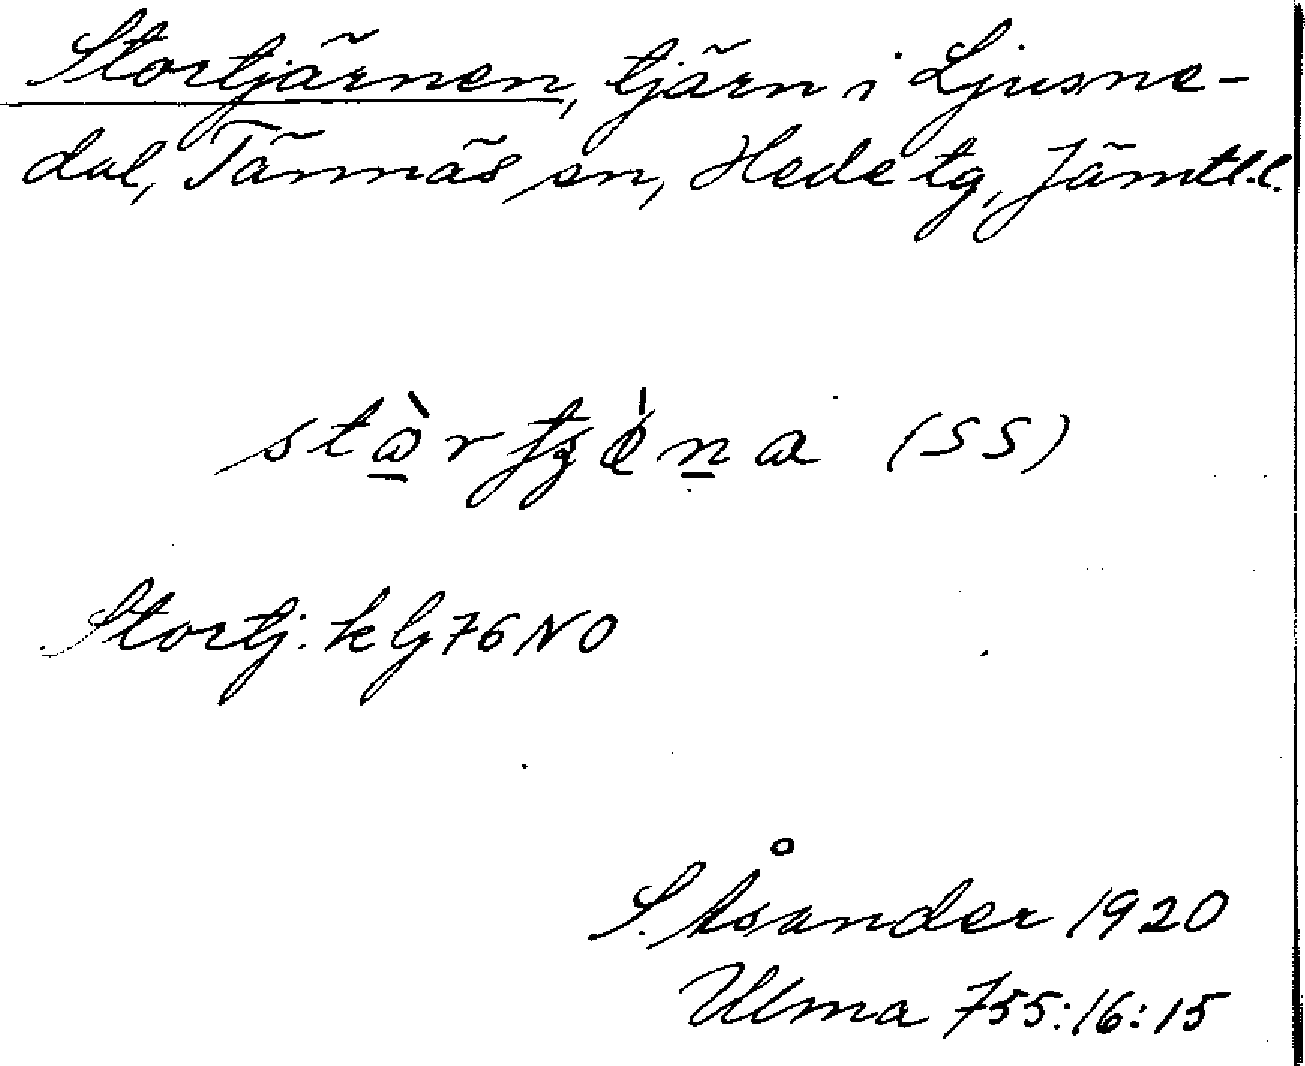 Stortjärnen, tjärn i Ljusne-
dal, Tännäs sn, Hede tg, Jämtl.l.
(SS)
Stortj. kG76NO
S. Åsander 1920
Ulma 755:16:15